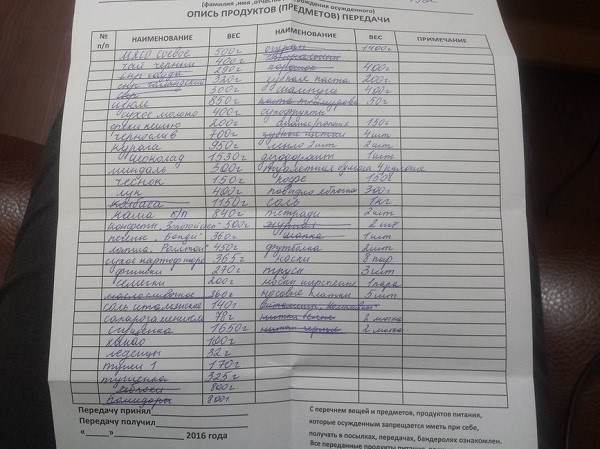 (фамилия ,имя ,отчество рождения осужденного)
ОПИСЬ ПРОДУКТОВ (ПРЕДМЕТОВ) ПЕРЕДАЧИ
№ п/п НАИМЕНОВАНИЕ ВЕС НАИМЕНОВАНИЕ ВЕС ПРИМЕЧАНИЕ
мясо соевое 500г 1400г
чай черный 400г
сыр гауда 290г 400г
зубная паста 200г
сыр 300г шампунь 400г
изюм 850г 50г
сухое молоко 400г сухофрукты
200г 150г
чернослив 400г зубные щетки 4шт
курага 950г мыло 2шт 2шт
шоколад 1530г дезодоранты 1шт
миндаль 300г туалетная бумага 4 рулона
чеснок 150г кофе 150г
лук 400г повидло яблочн 300г
колбаса 1150г соль 1кг
каша п/п 840г тетради 2шт
конфеты 500г журнал 2шт
печенье 360г шапка 1шт
лапша "Роллтон" 450г футболка 2шт
сухое картоф пюре 365г носки 8 пар
финики 270г трусы 3шт
семечки 200г носки шерстяные 1 пара
масло сливочное 360г носовые платки 5шт
соль 140г
сахарозаменитель 78г нитки белые 2 мотка
сгущенка 1650г нитки черные 2 мотка
какао 100г
леденцы 32г
170г
тушенка 325г
яблоки 800г
помидоры 800г
Передачу принял
Передачу получил
«____» 2016 года
С перечнем вещей и предметов, продуктов питания,
которые осужденным запрещается иметь при себе,
получать в посылках, передачах, бандеролях ознакомлен.
Все переданные продукты питания,